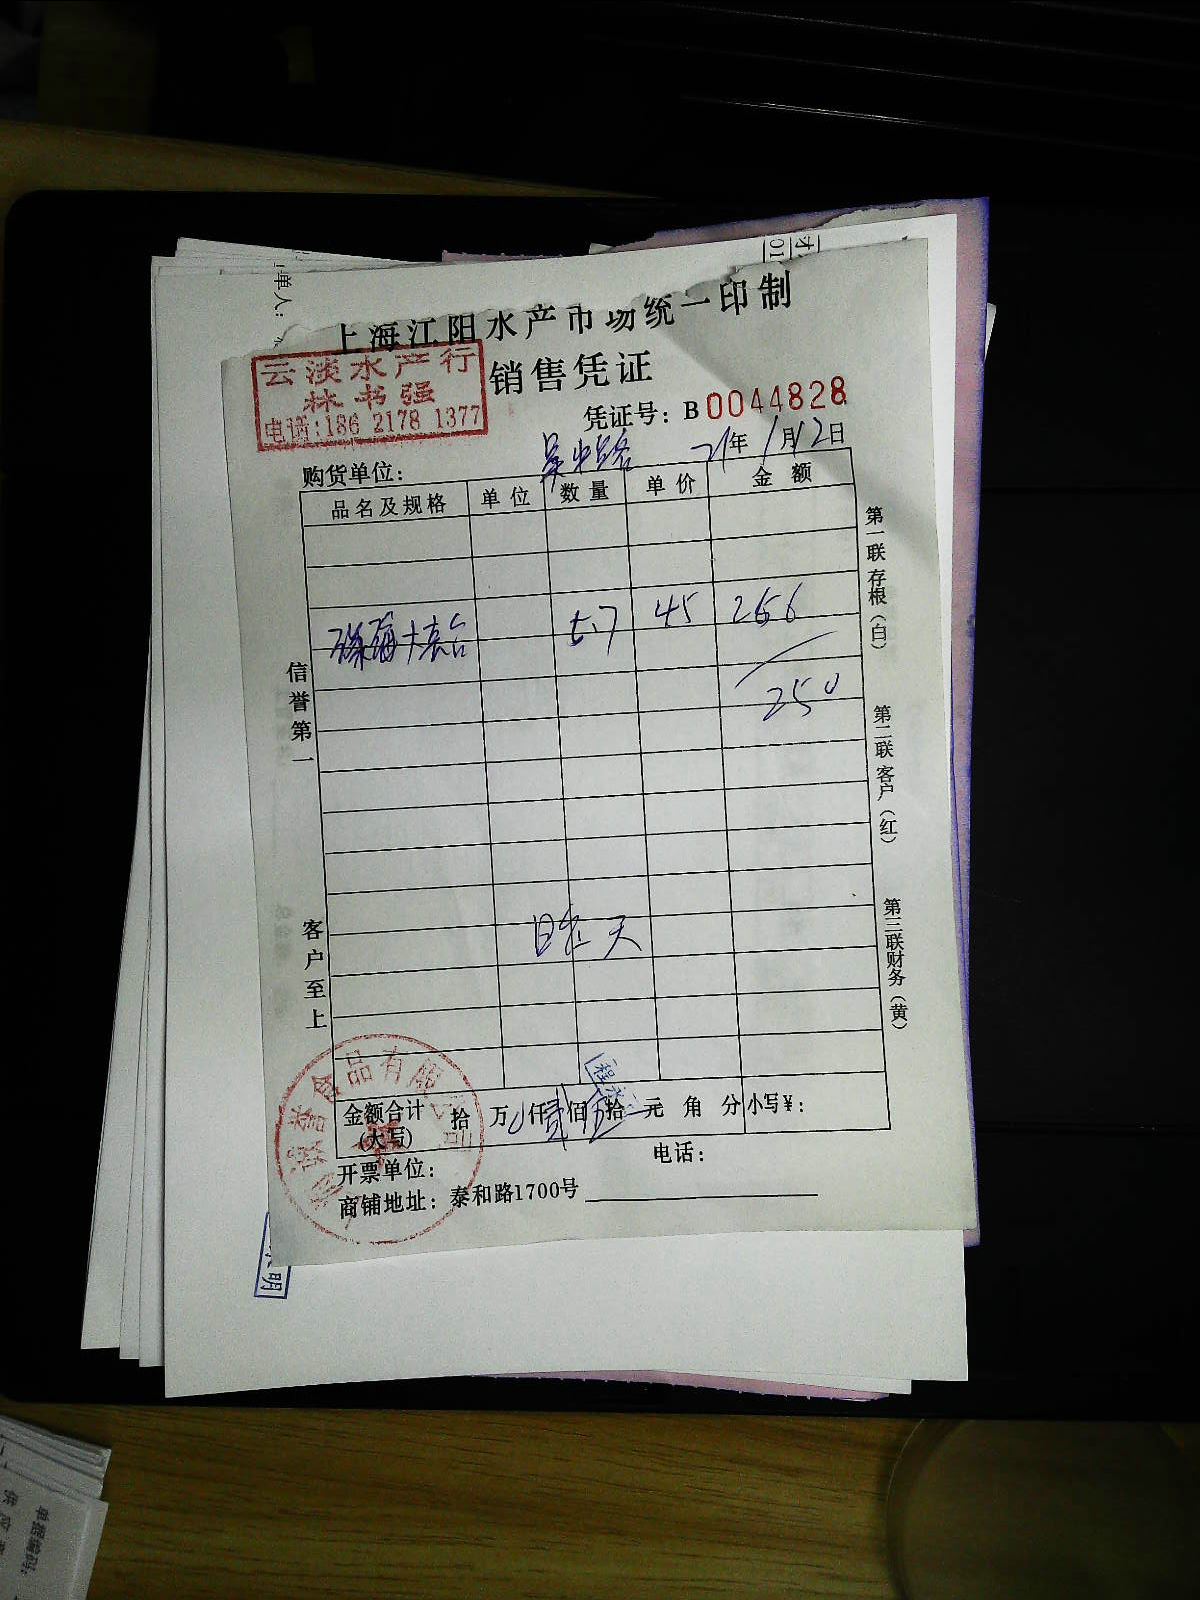 单人:
上海江阳水产市场统一印制
云淡水产行
林书强
电话:186 2178 1377
销售凭证
凭证号: B0044828
购货单位: 吴中路 21年1月12日
品名及规格 单位 数量 单价 金额
5.7 45 256
250
昨天
信誉第一
客户至上
第一联存根(白)
第二联客户(红)
第三联财务(黄)
食品有限公司
金额合计(大写) 拾 万 0仟 贰佰 伍拾 元 角 分 小写¥:
开票单位: 电话:
商铺地址: 泰和路1700号
明
单据编码: